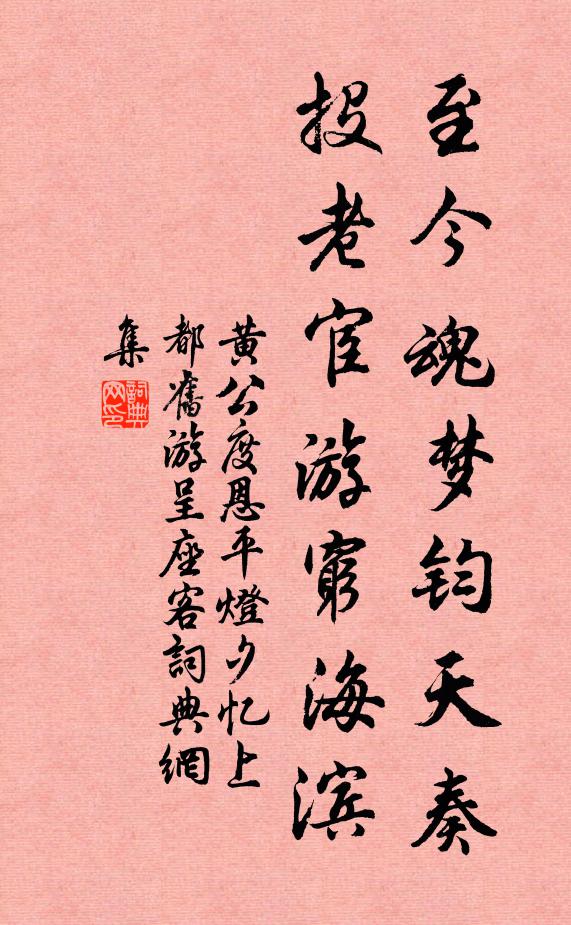 至今魂梦钧天奏
投老宦游窮海滨
黄公度恩平燈夕忆上
都舊游呈座客詞典網
集
詞典网印